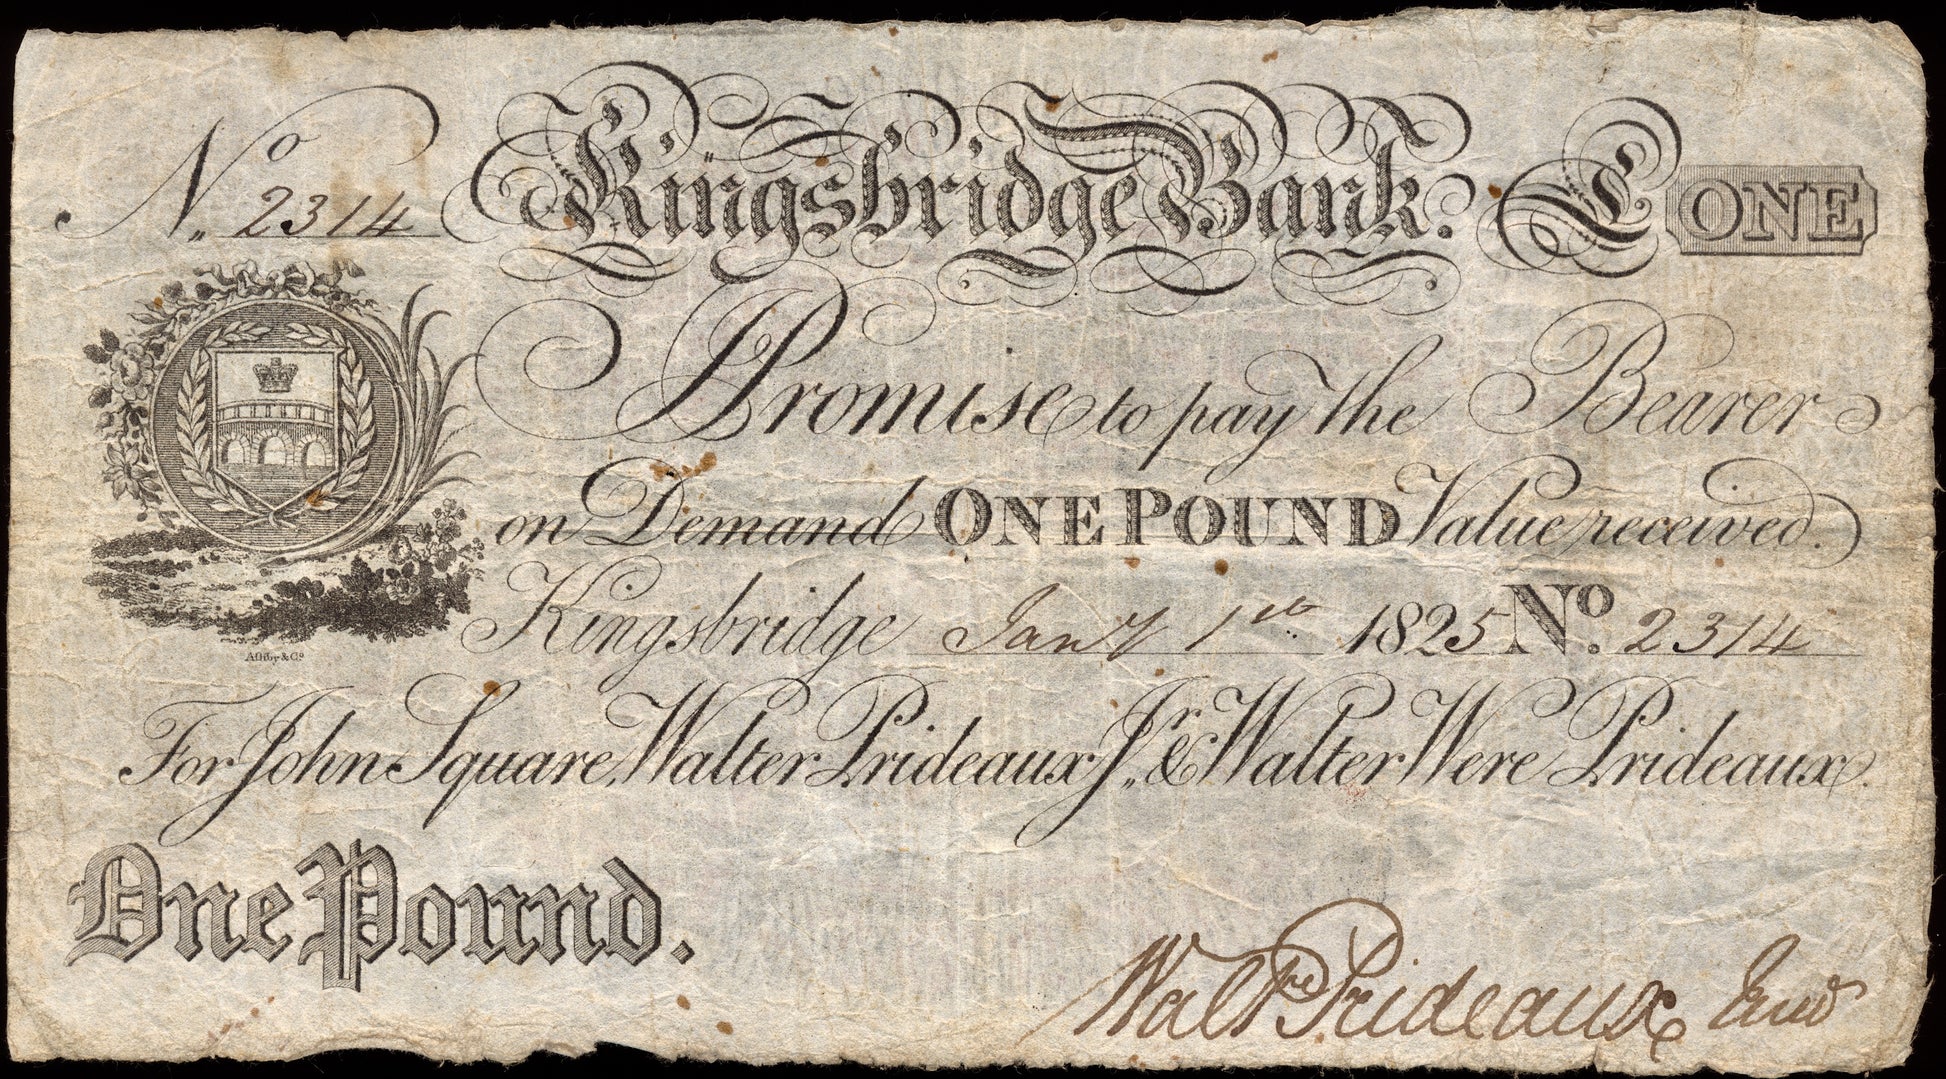 No. 2314 Kingsbridge Bank. £ ONE
Promise to pay the Bearer
on Demand ONE POUND Value received.
Kingsbridge Jany 1st 1825 No. 2314
Ashby & Co.
For John Square, Walter Prideaux Jr. & Walter Were Prideaux.
One Pound.
Walt Prideaux Junr